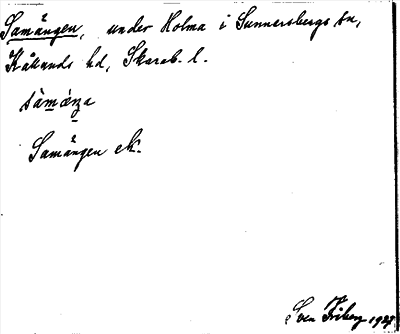 Samången, under Holma i Sunnersbergs sn,
Kållands hd, Skarab. l.
Samången ek.
Sven Friberg 1927